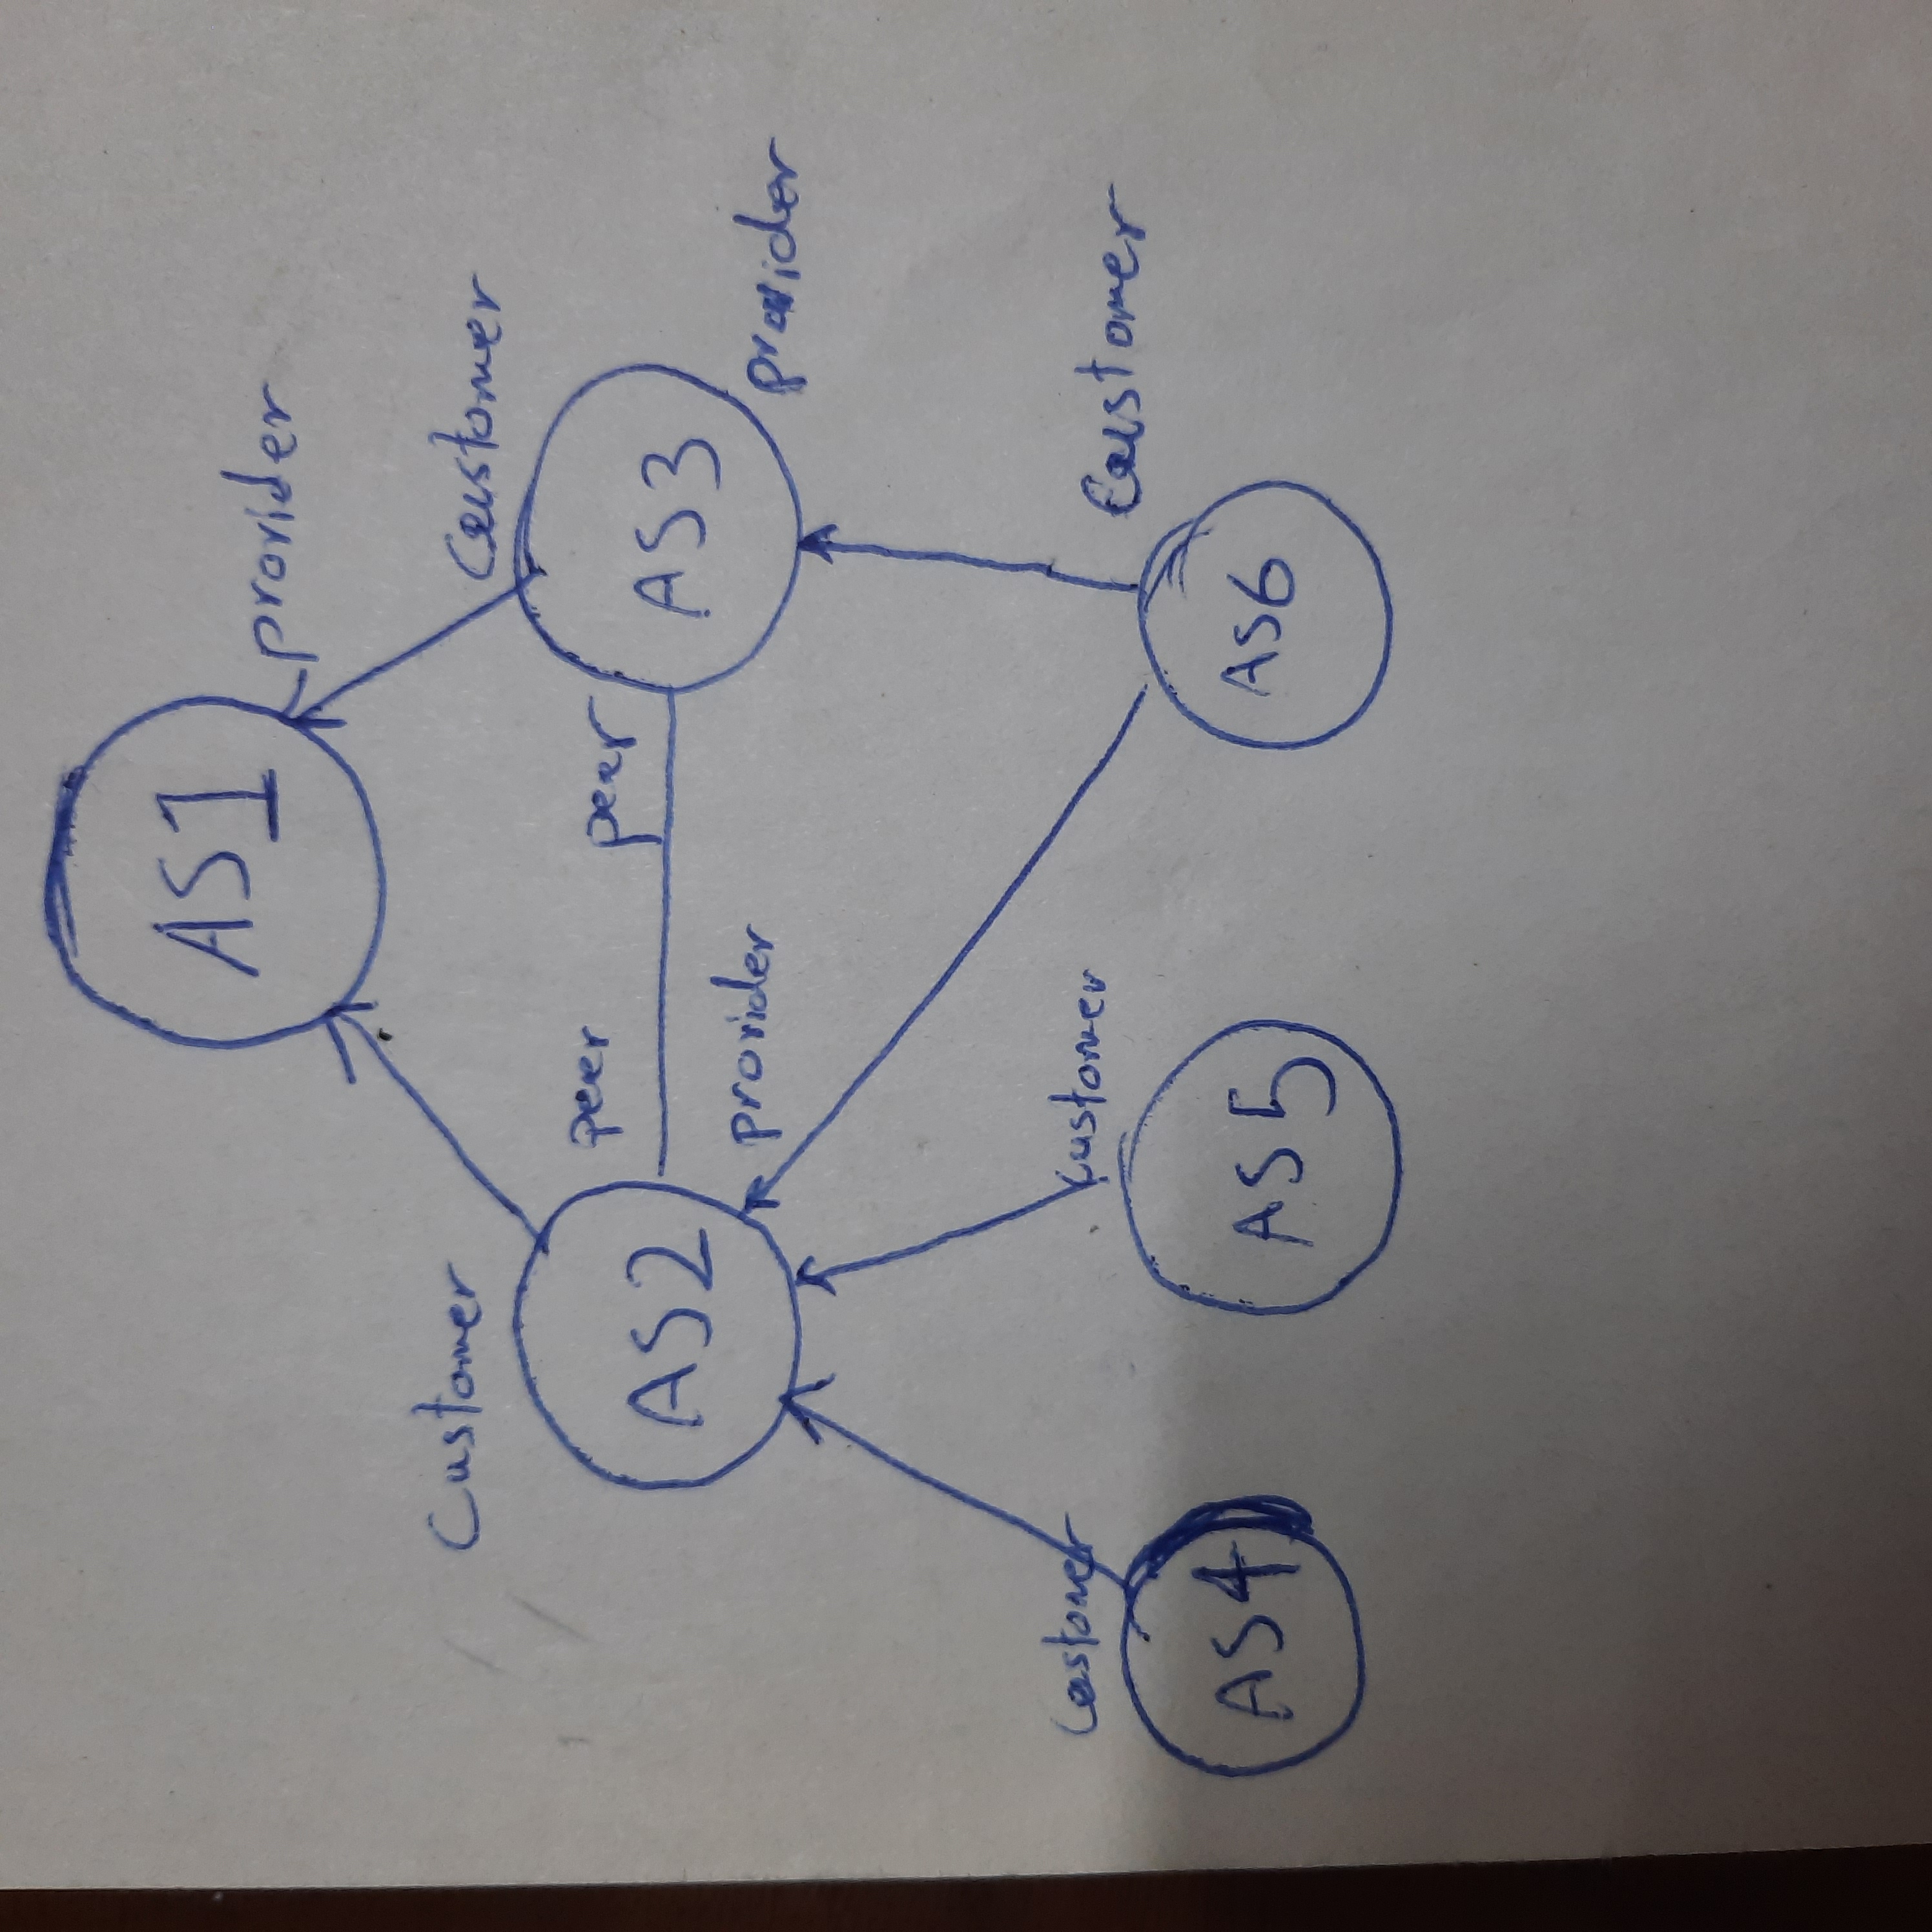 AS1
provider
Customer
Customer
peer
peer
AS2
AS3
provider
provider
Costomer
Customer
Customer
AS4
AS5
AS6